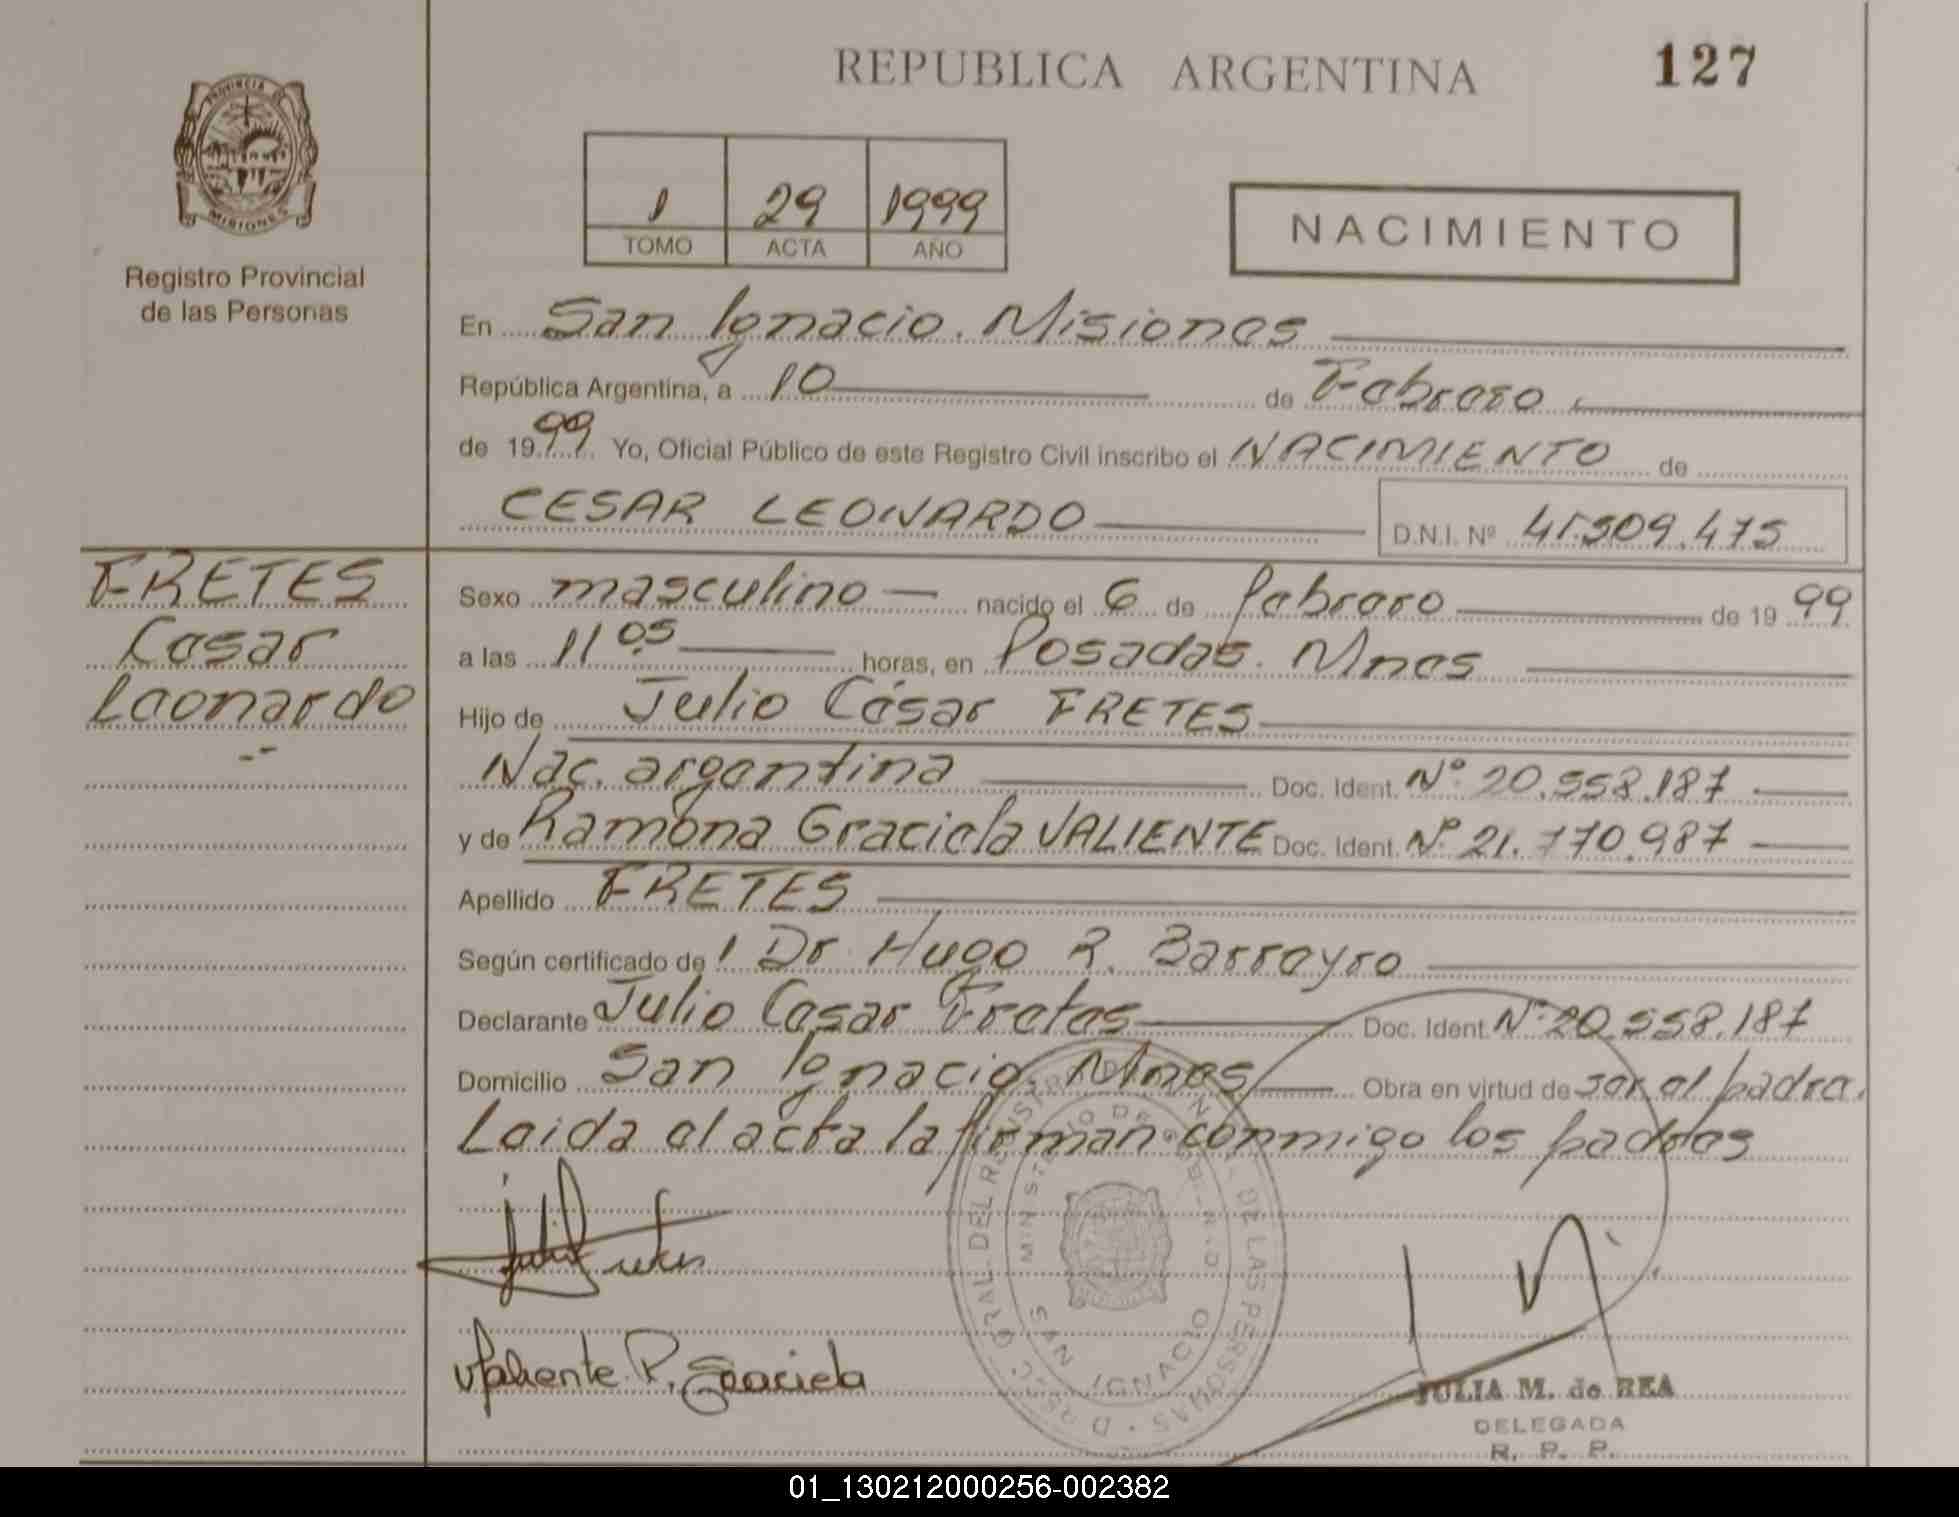 REPUBLICA ARGENTINA
127
PROVINCIA DE
MISIONES
Registro Provincial
de las Personas
1 29 1999
TOMO ACTA AÑO
NACIMIENTO
En San Ignacio. Misiones
República Argentina, a 10 de Febrero
de 1999 Yo, Oficial Público de este Registro Civil inscribo el NACIMIENTO de
CESAR LEONARDO D.N.I. Nº 41.509.475
FRETES
Cesar
Leonardo
Sexo masculino nacido el 6 de febrero de 1999
a las 11 05 horas, en Posadas. Mnes
Hijo de Julio César FRETES
Nac. argentina Doc. Ident. Nº 20.558.187
y de Ramona Graciela VALIENTE Doc. Ident. Nº 21.770.987
Apellido FRETES
Según certificado de Dr Hugo R. Barreyro
Declarante Julio Cesar Fretes Doc. Ident. Nº 20.558.187
Domicilio San Ignacio. Mnes Obra en virtud de ser el padre.
Leida el acta la firman conmigo los padres
Valiente R. Graciela
SAN IGNACIO
JULIA M. de REA
DELEGADA
R. P. P.
01_130212000256-002382